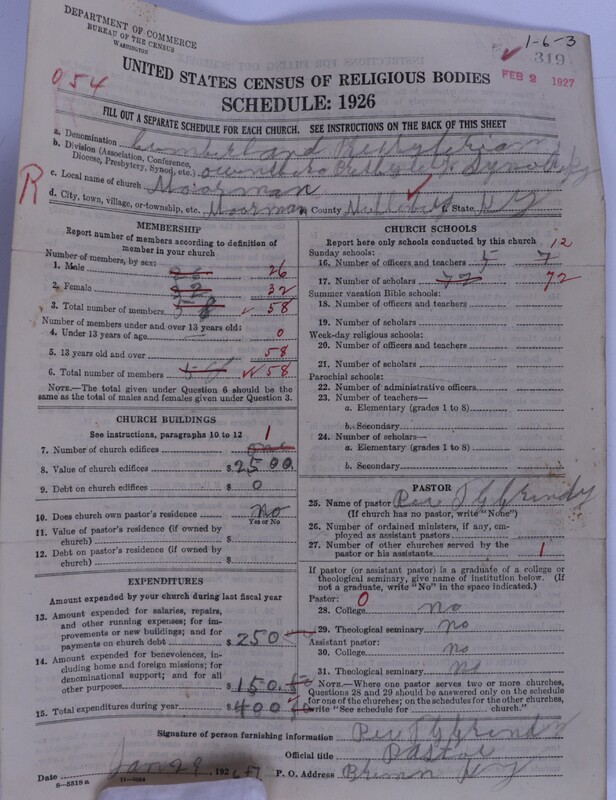 DEPARTMENT OF COMMERCE
BUREAU OF THE CENSUS
WASHINGTON
1-6-3
319
FEB 2 1927
054
UNITED STATES CENSUS OF RELIGIOUS BODIES
SCHEDULE: 1926
FILL OUT A SEPARATE SCHEDULE FOR EACH CHURCH. SEE INSTRUCTIONS ON THE BACK OF THIS SHEET
a. Denomination Cumberland Presbyterian
b. Division (Association, Conference,
Diocese, Presbytery, Synod, etc.) Owensboro Presbytery Synod Ky
R
c. Local name of church Moorman
d. City, town, village, or township, etc. Moorman County State Ky
MEMBERSHIP
Report number of members according to definition of
member in your church
Number of members, by sex:
1. Male 26 26
2. Female 32 32
3. Total number of members 58 58
Number of members under and over 13 years old:
4. Under 13 years of age 0
5. 13 years old and over 58
6. Total number of members 58 58
NOTE.—The total given under Question 6 should be
same as the total of males and females given under Question 3.
CHURCH BUILDINGS
See instructions, paragraphs 10 to 12
7. Number of church edifices one 1
8. Value of church edifices $2500
9. Debt on church edifices $ 0
10. Does church own pastor's residence? no
Yes or No
11. Value of pastor's residence (if owned by
church) $
12. Debt on pastor's residence (if owned by
church) $
EXPENDITURES
Amount expended by your church during last fiscal year
13. Amount expended for salaries, repairs,
and other running expenses; for im-
provements or new buildings; and for
payments on church debt $ 250
14. Amount expended for benevolences, in-
cluding home and foreign missions; for
denominational support; and for all
other purposes $ 150.50
15. Total expenditures during year $ 400
CHURCH SCHOOLS
Report here only schools conducted by this church
Sunday schools: 12
16. Number of officers and teachers 5 7
17. Number of scholars 72 72
Summer vacation Bible schools:
18. Number of officers and teachers
19. Number of scholars
Week-day religious schools:
20. Number of officers and teachers
21. Number of scholars
Parochial schools:
22. Number of administrative officers
23. Number of teachers—
a. Elementary (grades 1 to 8)
b. Secondary
24. Number of scholars—
a. Elementary (grades 1 to 8)
b. Secondary
PASTOR
25. Name of pastor Rev J G Grindy
(If church has no pastor, write "None")
26. Number of ordained ministers, if any, em-
ployed as assistant pastors
27. Number of other churches served by the
pastor or his assistants 1
If pastor (or assistant pastor) is a graduate of a college or
theological seminary, give name of institution below. (If
not a graduate, write "No" in the space indicated.)
Pastor: 0
28. College no
29. Theological seminary no
Assistant pastor:
30. College no
31. Theological seminary no
NOTE.—Where one pastor serves two or more churches,
Questions 28 and 29 should be answered only on the schedule
for one of the churches; on the schedules for the other churches,
write "See schedule for church."
Signature of person furnishing information Rev J G Grindy
Official title Pastor
Date Jan 29, 192 P. O. Address Bremen Ky
8—5518 a